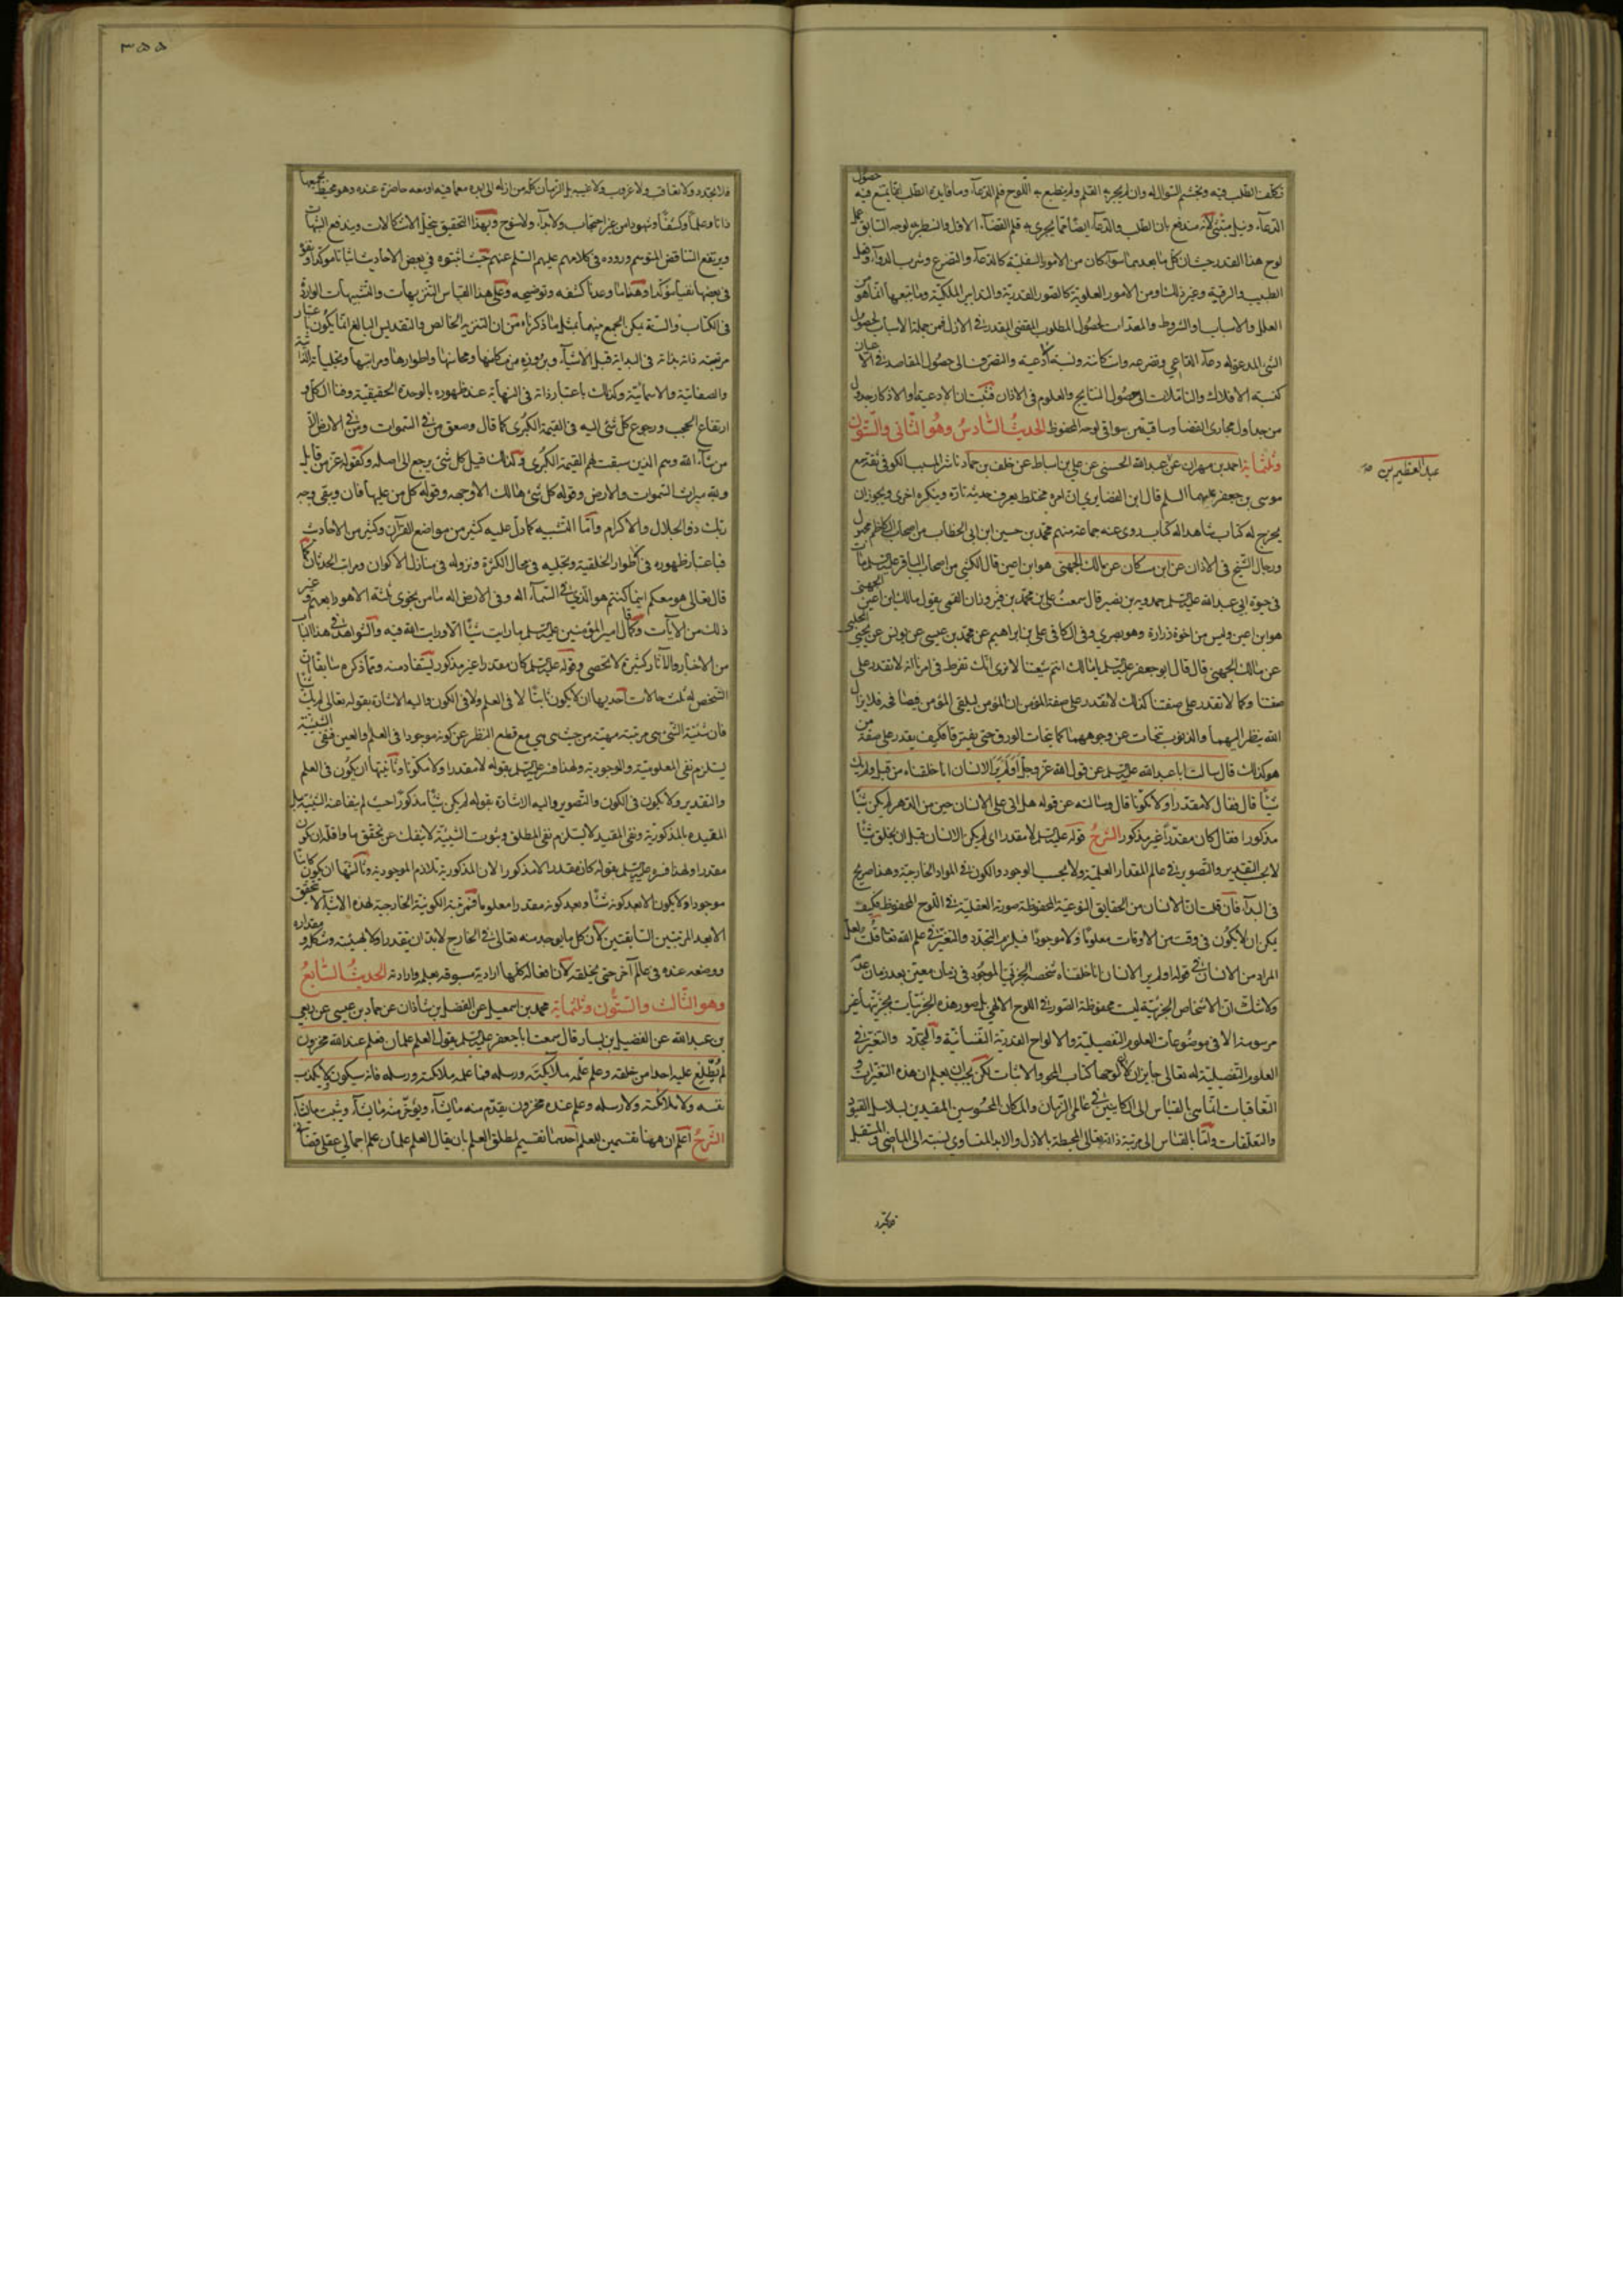 تكلف الطلب فيه وتجشم السؤال له وان لم يجر به القلم ولم ينطبع به اللوح فلم الدعاء وما فايدة الطلب لما يمتنع فيه حصول
المدعاء ونيل مبتغى لانه مندفع بان الطلب والدعاء ايضا مما يجري به قلم القضاء الاول وانسطر به لوحه السابق
لوح هذا القدر حيث ان كل ما بعدهما سواء كان من الامور السفلية كالدعاء والتضرع وشرب الدواء
الطبيب والرقية وغير ذلك او من الامور العلوية كالصور القدرية والتدابير الملكية وما يتبعها انما هو من
العلل والاسباب والشروط والمعدات لحصول المطلوب المقضي المقدر في الازل فمن جملة الاسباب لحصول
الشيء المدعو له دعاء الداعي وتضرعه واستكانته ونسبة الادعية والتضرعات الى حصول المقاصد في الاعيان
كنسبة الافكار والتاملات الى حصول النتايج والعلوم في الاذهان فثبت ان الادعية والاذكار جدول
من جداول مجاري القضا وساقية من سواقي لوحه المحفوظ الحديث السادس وهو الثاني والستون
وثلثماية احمد بن مهران عن عبد الله الحسني عن علي بن اسباط عن خلف بن حماد ناشر المسيب الكوفي ثقة سمع
موسى بن جعفر عليهما السلم قال ابن الغضايري ان امره مختلط يعرف حديثه تارة وينكر اخرى ويجوز ان
يخرج له كتاب شاهدا له كتاب روى عنه جماعة منهم محمد بن حسين ابن ابي الخطاب من اصحاب الكاظم
ورجال الشيخ في الاذان عن ابن مسكان عن مالك الجهني هو ابن اعين قال الكشي من اصحاب الباقر عليه السلم مات
في حيوة ابي عبد الله عليه السلم حمدويه بن نصير قال سمعت علي بن محمد بن فيروزان القمي يقول مالك ابن اعين الجهني
هو ابن اعين وليس من اخوة زرارة وهو بصري وفي الكافي علي بن ابراهيم عن محمد بن عيسى عن يونس عن يحيى الحلبي
عن مالك الجهني قال قال ابو جعفر عليه السلم يا مالك انتم شيعتنا لا ترى انك تفرط في امرنا انه لا تقدر على
صفتنا وكما لا تقدر على صفتنا كذلك لا تقدر على صفة المؤمن ان المؤمن ليلقى المؤمن فيصافحه فلا يزال
الله ينظر اليهما والذنوب تتحات عن وجوههما كما يتحات الورق حتى يفترقا فكيف يقدر على صفة من
هو كذلك قال سالت ابا عبد الله عليه السلم عن قول الله عز وجل اولم ير الانسان انا خلقناه من قبل ولم يك
شيئا قال فقال لا مقدرا ولا مكونا قال وسالته عن قوله هل اتى على الانسان حين من الدهر لم يكن شيئا
مذكورا فقال كان مقدرا غير مذكور الشرح قوله عليه السلم لا مقدرا اي لم يكن الانسان قبل ان يخلق شيئا
لا بحسب التقدير والتصوير في عالم المقدار العلمية ولا بحسب الوجود والكون في المواد الخارجية وهذا صريح
في البداء فان قلت ان الانسان من الحقايق النوعية المحفوظة صورته العقلية في اللوح المحفوظ فكيف
يمكن ان لا يكون في وقت من الاوقات معلوما ولا موجودا فيلزم التجدد والتغير في علم الله تعا قلت ولعل
المراد من الانسان في قوله اولم ير الانسان انا خلقناه شخصه الجزئي الموجود في زمان معين بعد زمان عدمه
ولا شك ان الاشخاص الجزئية ليست محفوظة الصور في اللوح الالهي بل صور هذه الجزئيات بجزئيتها غير
مرسومة الا في موضوعات العلوم التفصيلية والالواح القدرية النفسانية والتجدد والتغير في
العلوم التفصيلية له تعالى جايز لان لوحها كتاب المحو والاثبات لكن يجب ان يعلم ان هذه التغيرات و
التعاقبات انما هي بالقياس الى الكاينين في عالمي الزمان والمكان المحبوسين المقيدين بسلاسل القيود
والتعلقات واما بالقياس الى مرتبة ذاته تعالى المحيطة بالازل والابد المتساوي نسبته الى الماضي والمستقبل
عبد العظيم بن صح
فلا تجدد
٣٥٥
فلا تجدد ولا تعاقب ولا غروب ولا غيبة بل الزمان كله من ازله الى ابده مع ما فيه او معه حاضرة عنده وهو محيط بجميعها
ذاتا وعلما وكشفا وشهودا من غير احتجاب ولا بداء ولا سنوح وبهذا التحقيق ينحل الاشكالات ويندفع الشبهات
ويرتفع التناقض المتوهم وروده في كلامهم عليهم السلم عنهم حيث اثبتوه في بعض الاحاديث اثباتا مؤكدا ونفوه
في بعضها نفيا مؤكدا وهذا ما وعدنا كشفه وتوضيحه وعلى هذا القياس التنزيهات والتشبيهات الواردة
في الكتاب والسنة يمكن الجمع بينهما بمثل ما ذكرناه من ان التنزيه الخالص والتقديس البالغ انما يكون باعتبار
مرتبة ذاته بذاته في البداية قبل الاشياء وبروزه من مكامنها ومحاسنها واطوارها ومراتبها وتجلياته الذاتية
والصفاتية والاسمائية وكذلك باعتبار ذاته في النهاية عند ظهوره بالوحدة الحقيقية وفنا الكل و
ارتفاع الحجب ورجوع كل شئ اليه في القيمة الكبرى كما قال وصعق من في السموات ومن في الارض الا
من شاء الله وهم الذين سبقت لهم القيمة الكبرى وكذلك قيل كل شئ يرجع الى اصله وكقوله عز من قايل
ولله ميراث السموات والارض وقوله كل شئ هالك الا وجهه وقوله كل من عليها فان ويبقى وجه
ربك ذو الجلال والاكرام واما التشبيه كما دل عليه كثير من مواضع القرآن وكثير من الاحاديث
فباعتبار ظهوره في اطوار الخلقية وتجليه في مجال الكثرة ونزوله في منازل الاكوان ومراتب الحدثان كما
قال تعالى هو معكم اينما كنتم هو الذي في السماء اله وفي الارض اله ما من نجوى ثلثة الا هو رابعهم وغير
ذلك من الآيات وكما قال امير المؤمنين عليه السلم ما رايت شيئا الا ورايت الله فيه والشواهد في هذا الباب
من الاخبار والآثار كثيرة لا تحصى وقوله عليه السلم كان مقدرا غير مذكور يستفاد منه ومما ذكره سابقا ان
الشخص له ثلث حالات احديها ان لا يكون ثابتا لا في العلم ولا في الكون واليه الاشارة بقوله تعالى لم يك شيئا
فان شيئية الشئ هي مرتبة مهيته من حيث هي هي مع قطع النظر عن كونه موجودا في العلم والعين فنفي الشيئية
يستلزم نفي المعلومية والموجودية ولهذا فسره عليه السلم بقوله لا مقدرا ولا مكونا وثانيتها ان يكون في العلم
والتقدير ولا يكون في الكون والتصوير واليه الاشارة بقوله لم يكن شيئا مذكورا حيث لم ينفا عنه الشيئية بل
المقيدة بالمذكورية ونفي المقيد لا يستلزم نفي المطلق وثبوت الشيئية لا ينفك عن تحقق ما واقله ان يكون
مقدرا ولهذا فسره عليه السلم بقوله كان مقدرا لا مذكورا لان المذكورية تلازم الموجودية وثالثتها ان يكون كاينا
موجودا ولا يكون الا بعد كونه شيئا وبعد كونه مقدرا معلوما فمرتبة الكونية الخارجية لهذه الاشياء لا تحقق
الا بعد المرتبتين السابقتين لان كل ما يوجد منه تعالى في الخارج لا بد ان يقدر اولا بهيئته وشكله و مقداره
ووضعه عنده في عالم آخر حتى يخلقه لان افعاله كلها ارادية مسبوقة بعلمه وارادته الحديث السابع
وهو الثالث والستون وثلثماية محمد بن اسمعيل عن الفضل بن شاذان عن حماد بن عيسى عن ربعي
بن عبد الله عن الفضيل بن يسار قال سمعت ابا جعفر عليه السلم يقول العلم علمان فعلم عند الله مخزون
لم يطلع عليه احدا من خلقه وعلم علمه ملائكته ورسله فما علمه ملائكته ورسله فانه سيكون لا يكذب
نفسه ولا ملائكته ولا رسله وعلم عنده مخزون يقدم منه ما يشاء ويؤخر منه ما يشاء ويثبت ما يشاء
الشرح اعلم ان ههنا تقسمين للعلم احدهما تقسيم لمطلق العلم بان يقال العلم علمان علم اجمالي عقلي قضائي